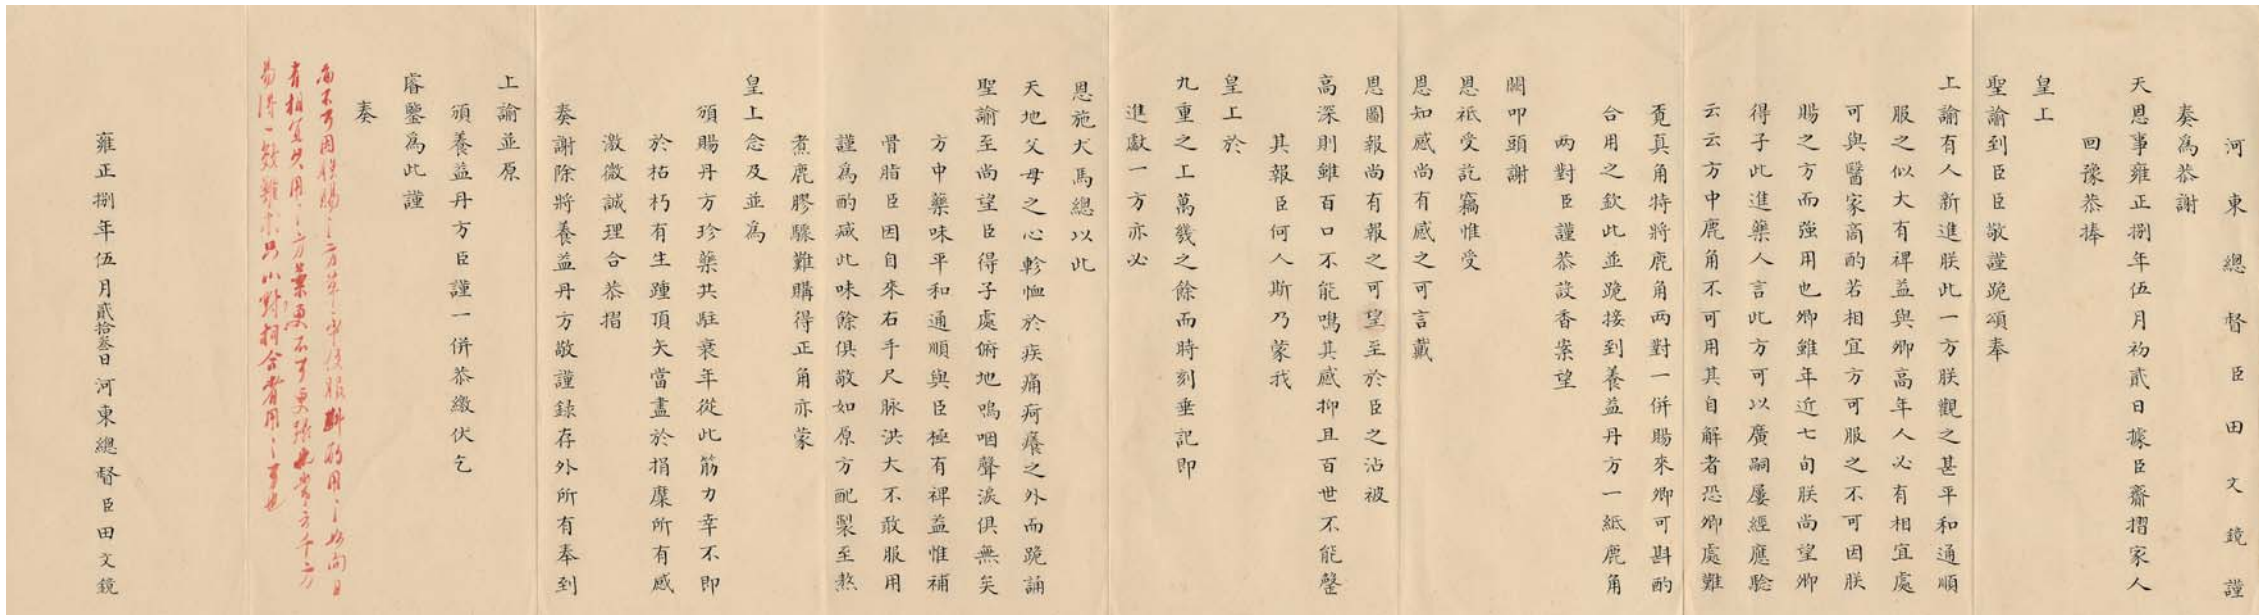 河東總督臣田文鏡謹
奏為恭謝
天恩事雍正捌年伍月初貳日據臣齎摺家人
回豫恭捧
皇上
聖諭到臣臣敬謹跪頌奉
上諭有人新進朕此一方朕觀之甚平和通順
服之似大有裨益與卿高年人必有相宜處
可與醫家商酌若相宜方可服之不可因朕
賜之方而強用也卿雖年近七旬朕尚望卿
得子此進藥人言此方可以廣嗣屢經應驗
云云方中鹿角不可用其自解者恐卿處難
覔真角特將鹿角两對一併賜來卿可斟酌
合用之欽此並跪接到養益丹方一紙鹿角
两對臣謹恭設香案望
闕叩頭謝
恩祇受訖竊惟受
恩知感尚有感之可言戴
恩圖報尚有報之可望至於臣之沾被
高深則雖百口不能鳴其感抑且百世不能罄
其報臣何人斯乃蒙我
皇上於
九重之上萬幾之餘而時刻垂記即
進獻一方亦必
恩施犬馬總以此
天地父母之心軫恤於疾痛疴癢之外而跪誦
聖諭至尚望臣得子處俯地嗚咽聲淚俱無矣
方中藥味平和通順與臣極有裨益惟補
骨脂臣因自來右手尺脉洪大不敢服用
謹為酌減此味餘俱敬如原方配製至熬
煮鹿膠驟難購得正角亦蒙
皇上念及並為
頒賜丹方珍藥共駐衰年從此筋力幸不即
於枯朽有生踵頂矢當盡於捐糜所有感
激微誠理合恭摺
奏謝除將養益丹方敬謹録存外所有奉到
上諭並原
頒養益丹方臣謹一併恭繳伏乞
睿鑒為此謹
奏
不可因朕賜之方草草服斟酌用之如向日
有相宜共用之方藥更不可更張也常言千方
易得一效難求只以對相合者用之可也
雍正捌年伍月貳拾叁日河東總督臣田文鏡